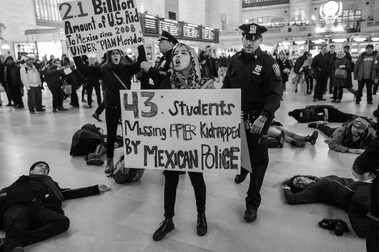 2.1 Billion
Amount of U.S. aid
Mexico since 2008
UNDER "PLAN Merida"
43 Students
Missing AFTER Kidnapped
BY MEXICAN POLICE